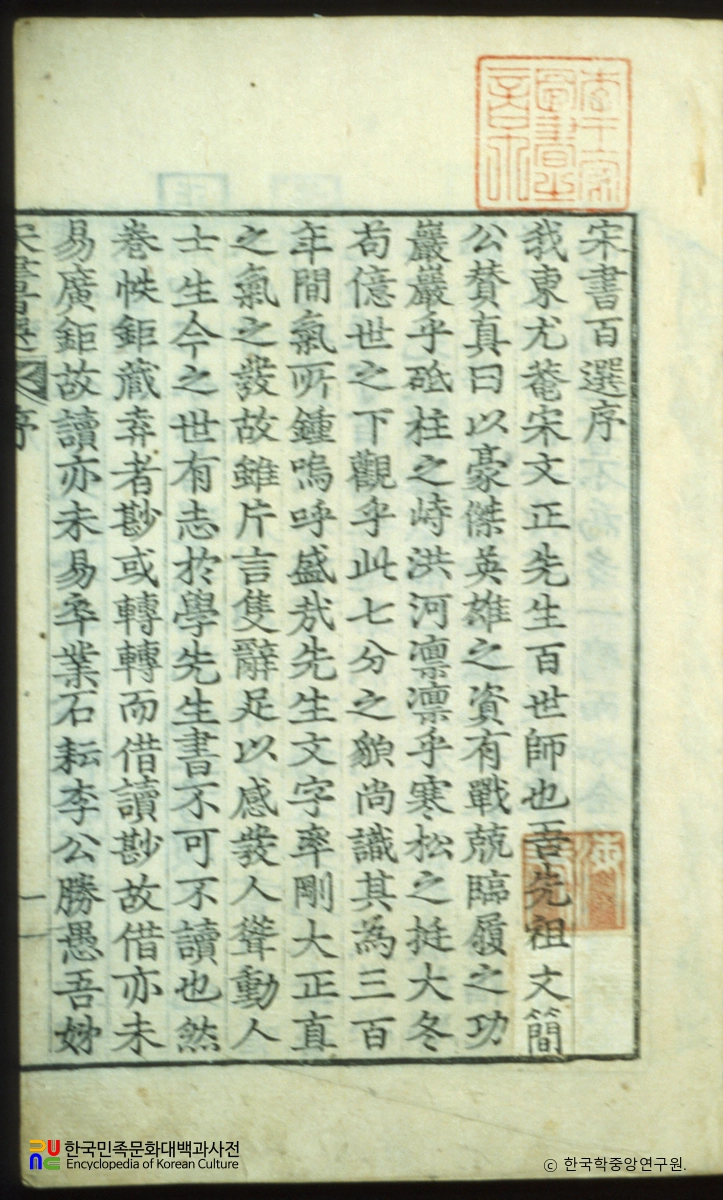 宋書百選序
我東尤菴宋文正先生百世師也吾先祖文簡
公賛真曰以豪傑英雄之資有戰兢臨履之功
巖巖乎砥柱之峙洪河凛凛乎寒松之挺大冬
苟億世之下觀乎此七分之貌尚識其為三百
年間氣所鍾嗚呼盛㢤先生文字率剛大正直
之氣之發故雖片言隻辭足以感發人聳動人
士生今之世有志於學先生書不可不讀也然
巻帙鉅藏弆者尟或轉轉而借讀尟故借亦未
易廣鉅故讀亦未易卒業石耘李公勝愚吾姊
序
한국민족문화대백과사전
Encyclopedia of Korean Culture
ⓒ 한국학중앙연구원.